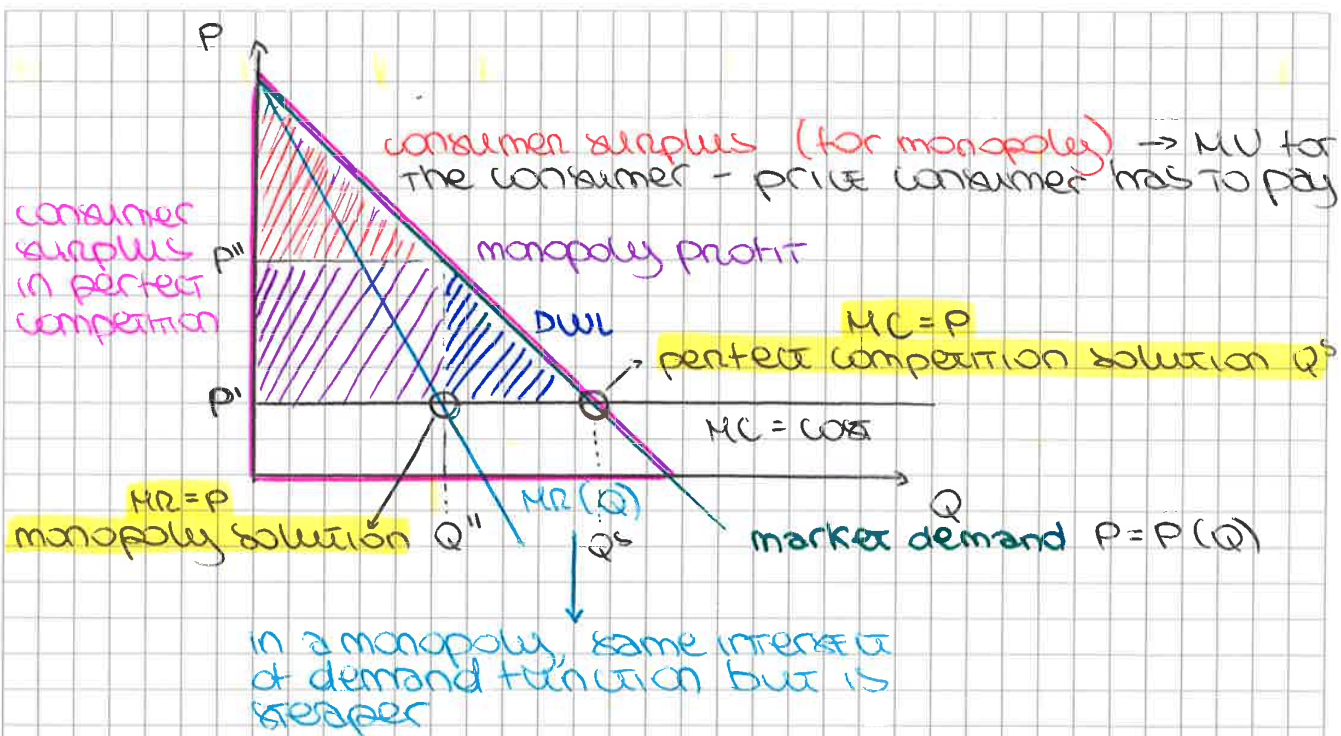 P
consumer surplus (for monopoly) → MU for
the consumer - price consumer has to pay
consumer
surplus
in perfect
competition
P"
monopoly profit
DWL
MC = P
perfect competition solution Qˢ
P'
MC = cost
MR = P
monopoly solution
Q"
MR(Q)
Qˢ
Q
market demand P = P(Q)
in a monopoly, same intersect
of demand function but is
steaper